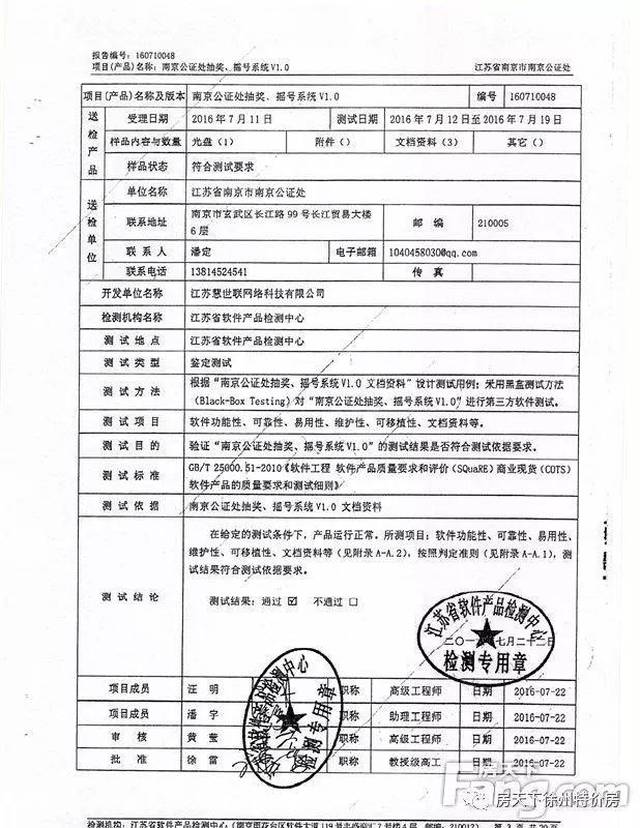 报告编号：160710048
项目(产品)名称：南京公证处抽奖、摇号系统V1.0 江苏省南京市南京公证处
项目(产品)名称及版本 南京公证处抽奖、摇号系统V1.0 编号 160710048
送检产品 受理日期 2016年7月11日 测试日期 2016年7月12日至2016年7月19日
样品内容与数量 光盘(1) 附件() 文档资料(3) 其它()
样品状态 符合测试要求
送检单位 单位名称 江苏省南京市南京公证处
联系地址 南京市玄武区长江路99号长江贸易大楼
6层 邮编 210005
联系人 潘定 电子邮箱 1040458030@qq.com
联系电话 13814524541 传真
开发单位名称 江苏慧世联网络科技有限公司
检测机构名称 江苏省软件产品检测中心
测试地点 江苏省软件产品检测中心
测试类型 鉴定测试
测试方法 根据“南京公证处抽奖、摇号系统V1.0 文档资料”设计测试用例；采用黑盒测试方法
(Black-Box Testing)对“南京公证处抽奖、摇号系统V1.0”进行第三方软件测试。
测试项目 软件功能性、可靠性、易用性、维护性、可移植性、文档资料等。
测试目的 验证“南京公证处抽奖、摇号系统V1.0”的测试结果是否符合测试依据要求。
测试标准 GB/T 25000.51-2010《软件工程 软件产品质量要求和评价(SQuaRE)商业现货(COTS)
软件产品的质量要求和测试细则》
测试依据 南京公证处抽奖、摇号系统V1.0 文档资料
测试结论 在给定的测试条件下，产品运行正常。所测项目：软件功能性、可靠性、易用性、
维护性、可移植性、文档资料等（见附录A-A.2），按照判定准则（见附录A-A.1），测
试结果符合测试依据要求。
测试结果：通过☑ 不通过□
江苏省软件产品检测中心
二〇一六年七月二十二日
检测专用章
江苏省软件产品检测中心
检测专用章
项目成员 汪明 职称 高级工程师 日期 2016-07-22
项目成员 潘宇 职称 助理工程师 日期 2016-07-22
审核 黄莹 职称 高级工程师 日期 2016-07-22
批准 徐雷 职称 教授级高工 日期 2016-07-22
房天下
Fang.com
房天下徐州特价房
检测机构：江苏省软件产品检测中心(南京雨花台区软件大道119号